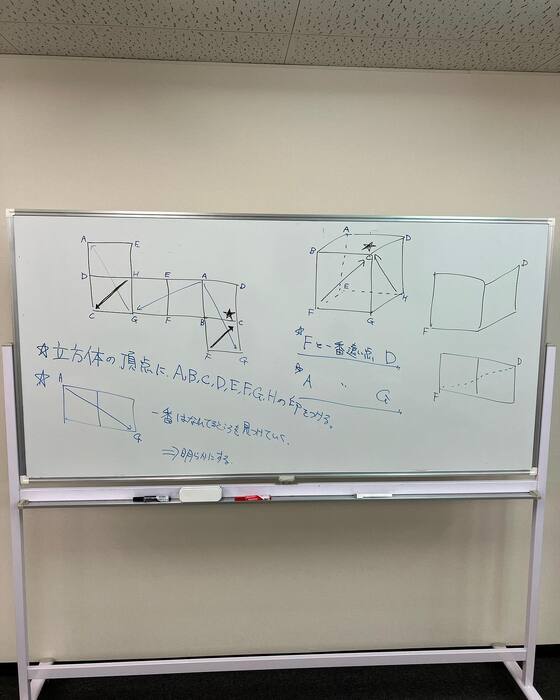 A E
D H E A D
C G F B ★ C
F G
A D
B ★ C
E
F H
G
D
F
☆ Fと一番遠い点 D
☆ A 〃 G
D
F
☆ 立方体の頂点に、A,B,C,D,E,F,G,Hの印をつける。
☆
A
G
一番はなれてるところを見つけていく。
⇒明らかにする。